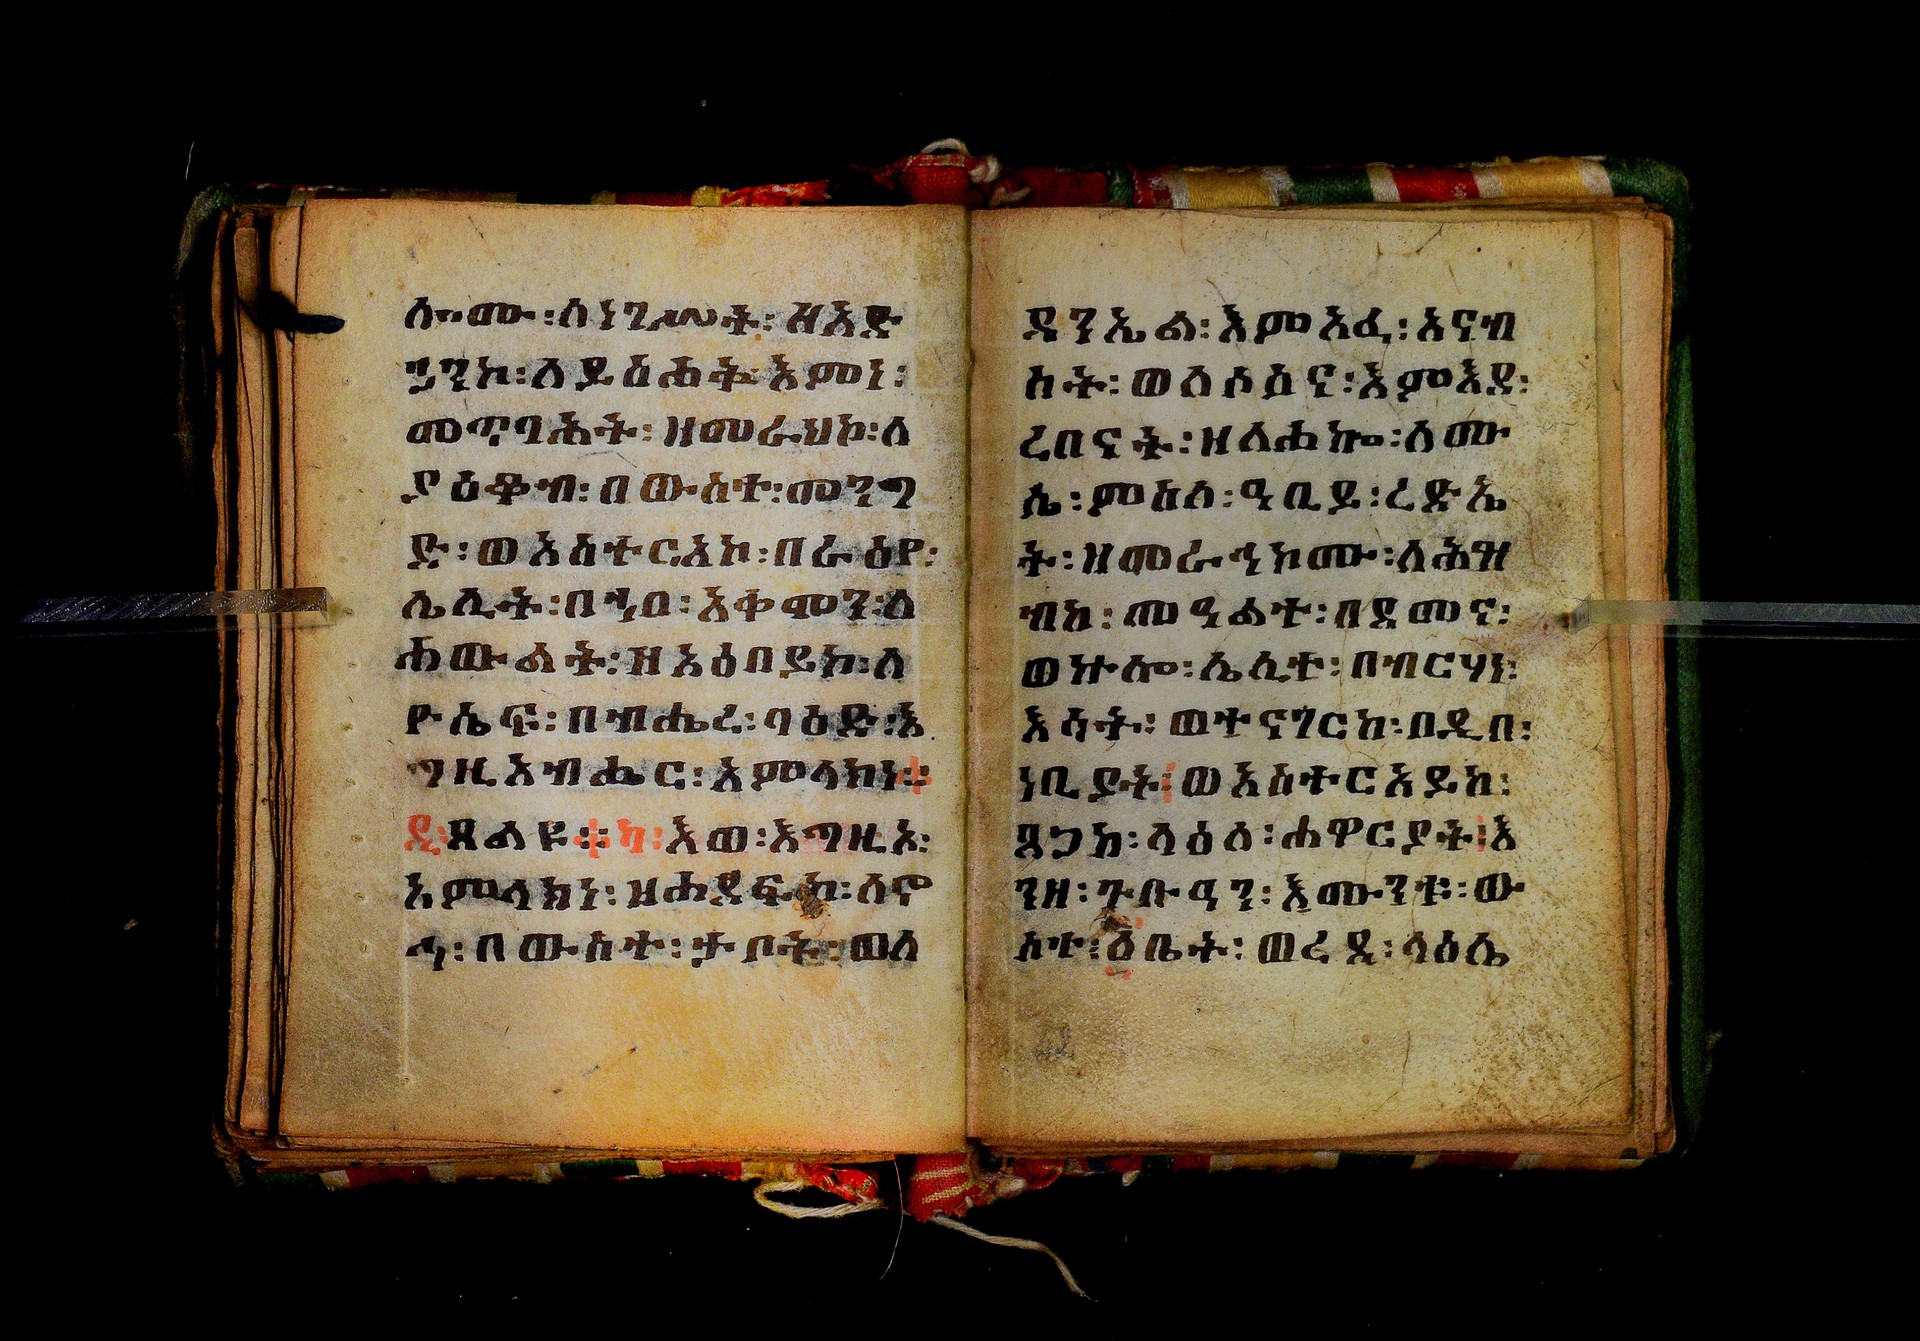 ሎሙ፡ሰነንሠሠት፡ዘአድ
ኀንኮ፡ለይስሐቅ፡እምነ፡
መጥባሕት፡ዘመራህኮ፡ለ
ያዕቆብ፡በውስተ፡መንግ
ድ፡ወአስተርአኮ፡በራዕየ፡
ሌሊት፡በኀበ፡አቀመን፡ለ
ሐውልት፡ዝአዕበይኮ፡ለ
ዮሴፍ፡በብሔረ፡ባዕድ፡እ
ግዚአብሔር፡አምላክነ፡
ጸልዩ፡ካ፡እወ፡እግዚእ፡
አምላክነ፡ዝሐደፍኮ፡ለኖ
ኅ፡በውስተ፡ታቦት፡ወለ
ዳንኤል፡እምአፈ፡አናብ
ስት፡ወለሶስና፡እምእደ፡
ረበናት፡ዘለሐኰ፡ለሙ
ሴ፡ምስለ፡ዓቢይ፡ረድኤ
ት፡ዘመራኅኮሙ፡ለሕዝ
ብከ፡መዓልተ፡በደመና፡
ወኵሎ፡ሌሊተ፡በብርሃነ፡
እሳት፡ወተናገርከ፡በዲበ፡
ነቢያት፡ወአስተርአይከ፡
ጸጋከ፡ላዕለ፡ሐዋርያት፡እ
ንዘ፡ጉቡዓን፡እሙንቱ፡ው
ስተ፡፩ቤት፡ወረደ፡ላዕሌ